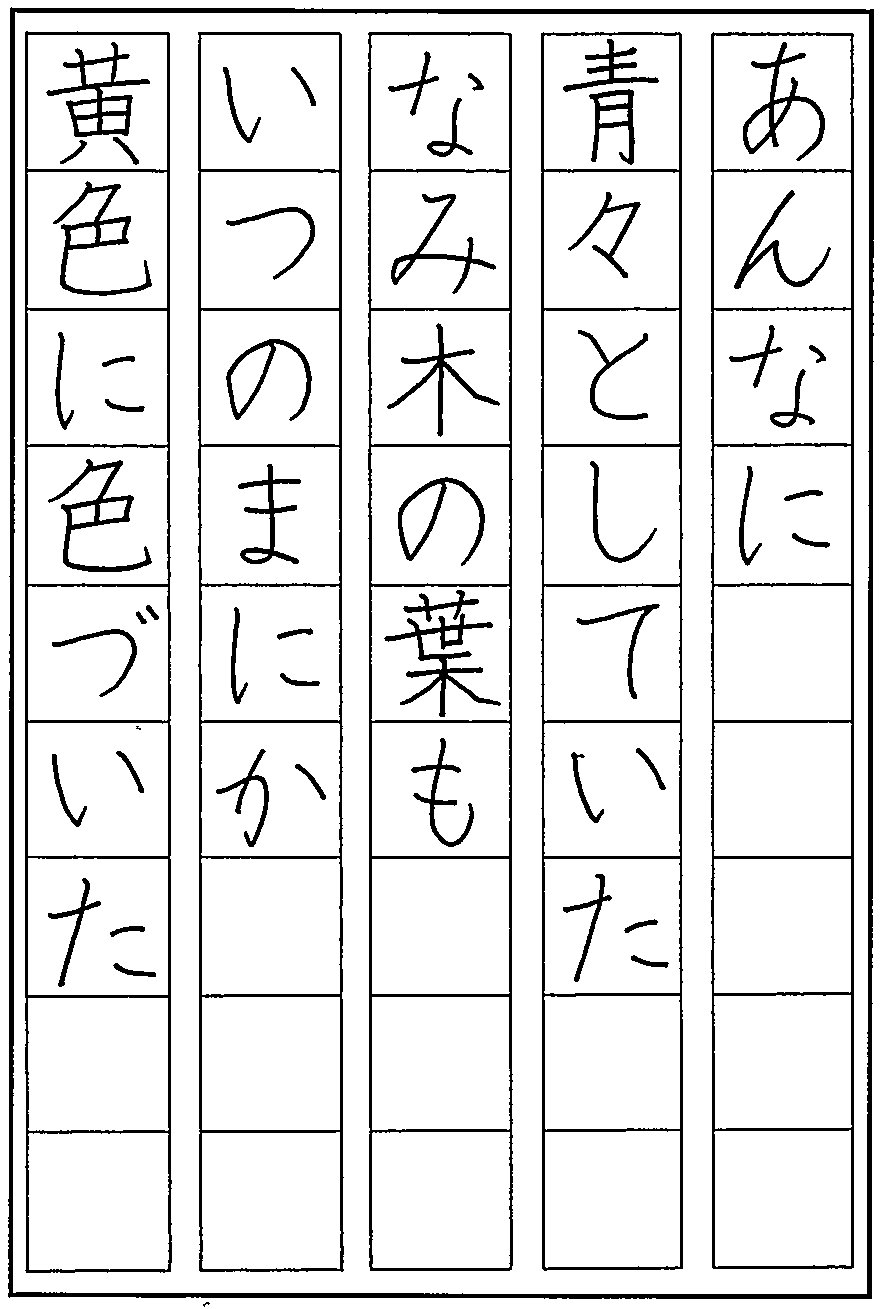 あんなに
青々としていた
なみ木の葉も
いつのまにか
黄色に色づいた